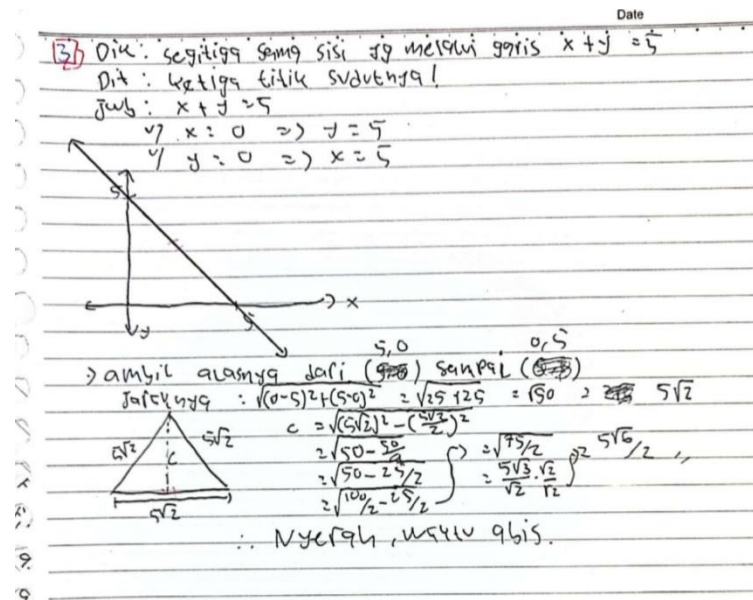 Date
3) Dik: segitiga sama sisi yg melalui garis x + y = 5
Dit : ketiga titik sudutnya!
Jwb : x + y = 5
x = 0 => y = 5
y = 0 => x = 5
5
x
y
5
5,0 0,5
ambil alasnya dari ( ) sampai ( )
Jaraknya : √(0-5)²+(5-0)² = √25+25 = √50 = 5√2
5√2 5√2 c
5√2
c = √(5√2)² - (5√2/2)²
= √50 - 50/4
= √50 - 25/2
= √100/2 - 25/2
= √75/2
= 5√3/√2 · √2/√2
= 5√6/2 //
∴ Nyerah, waktu abis.